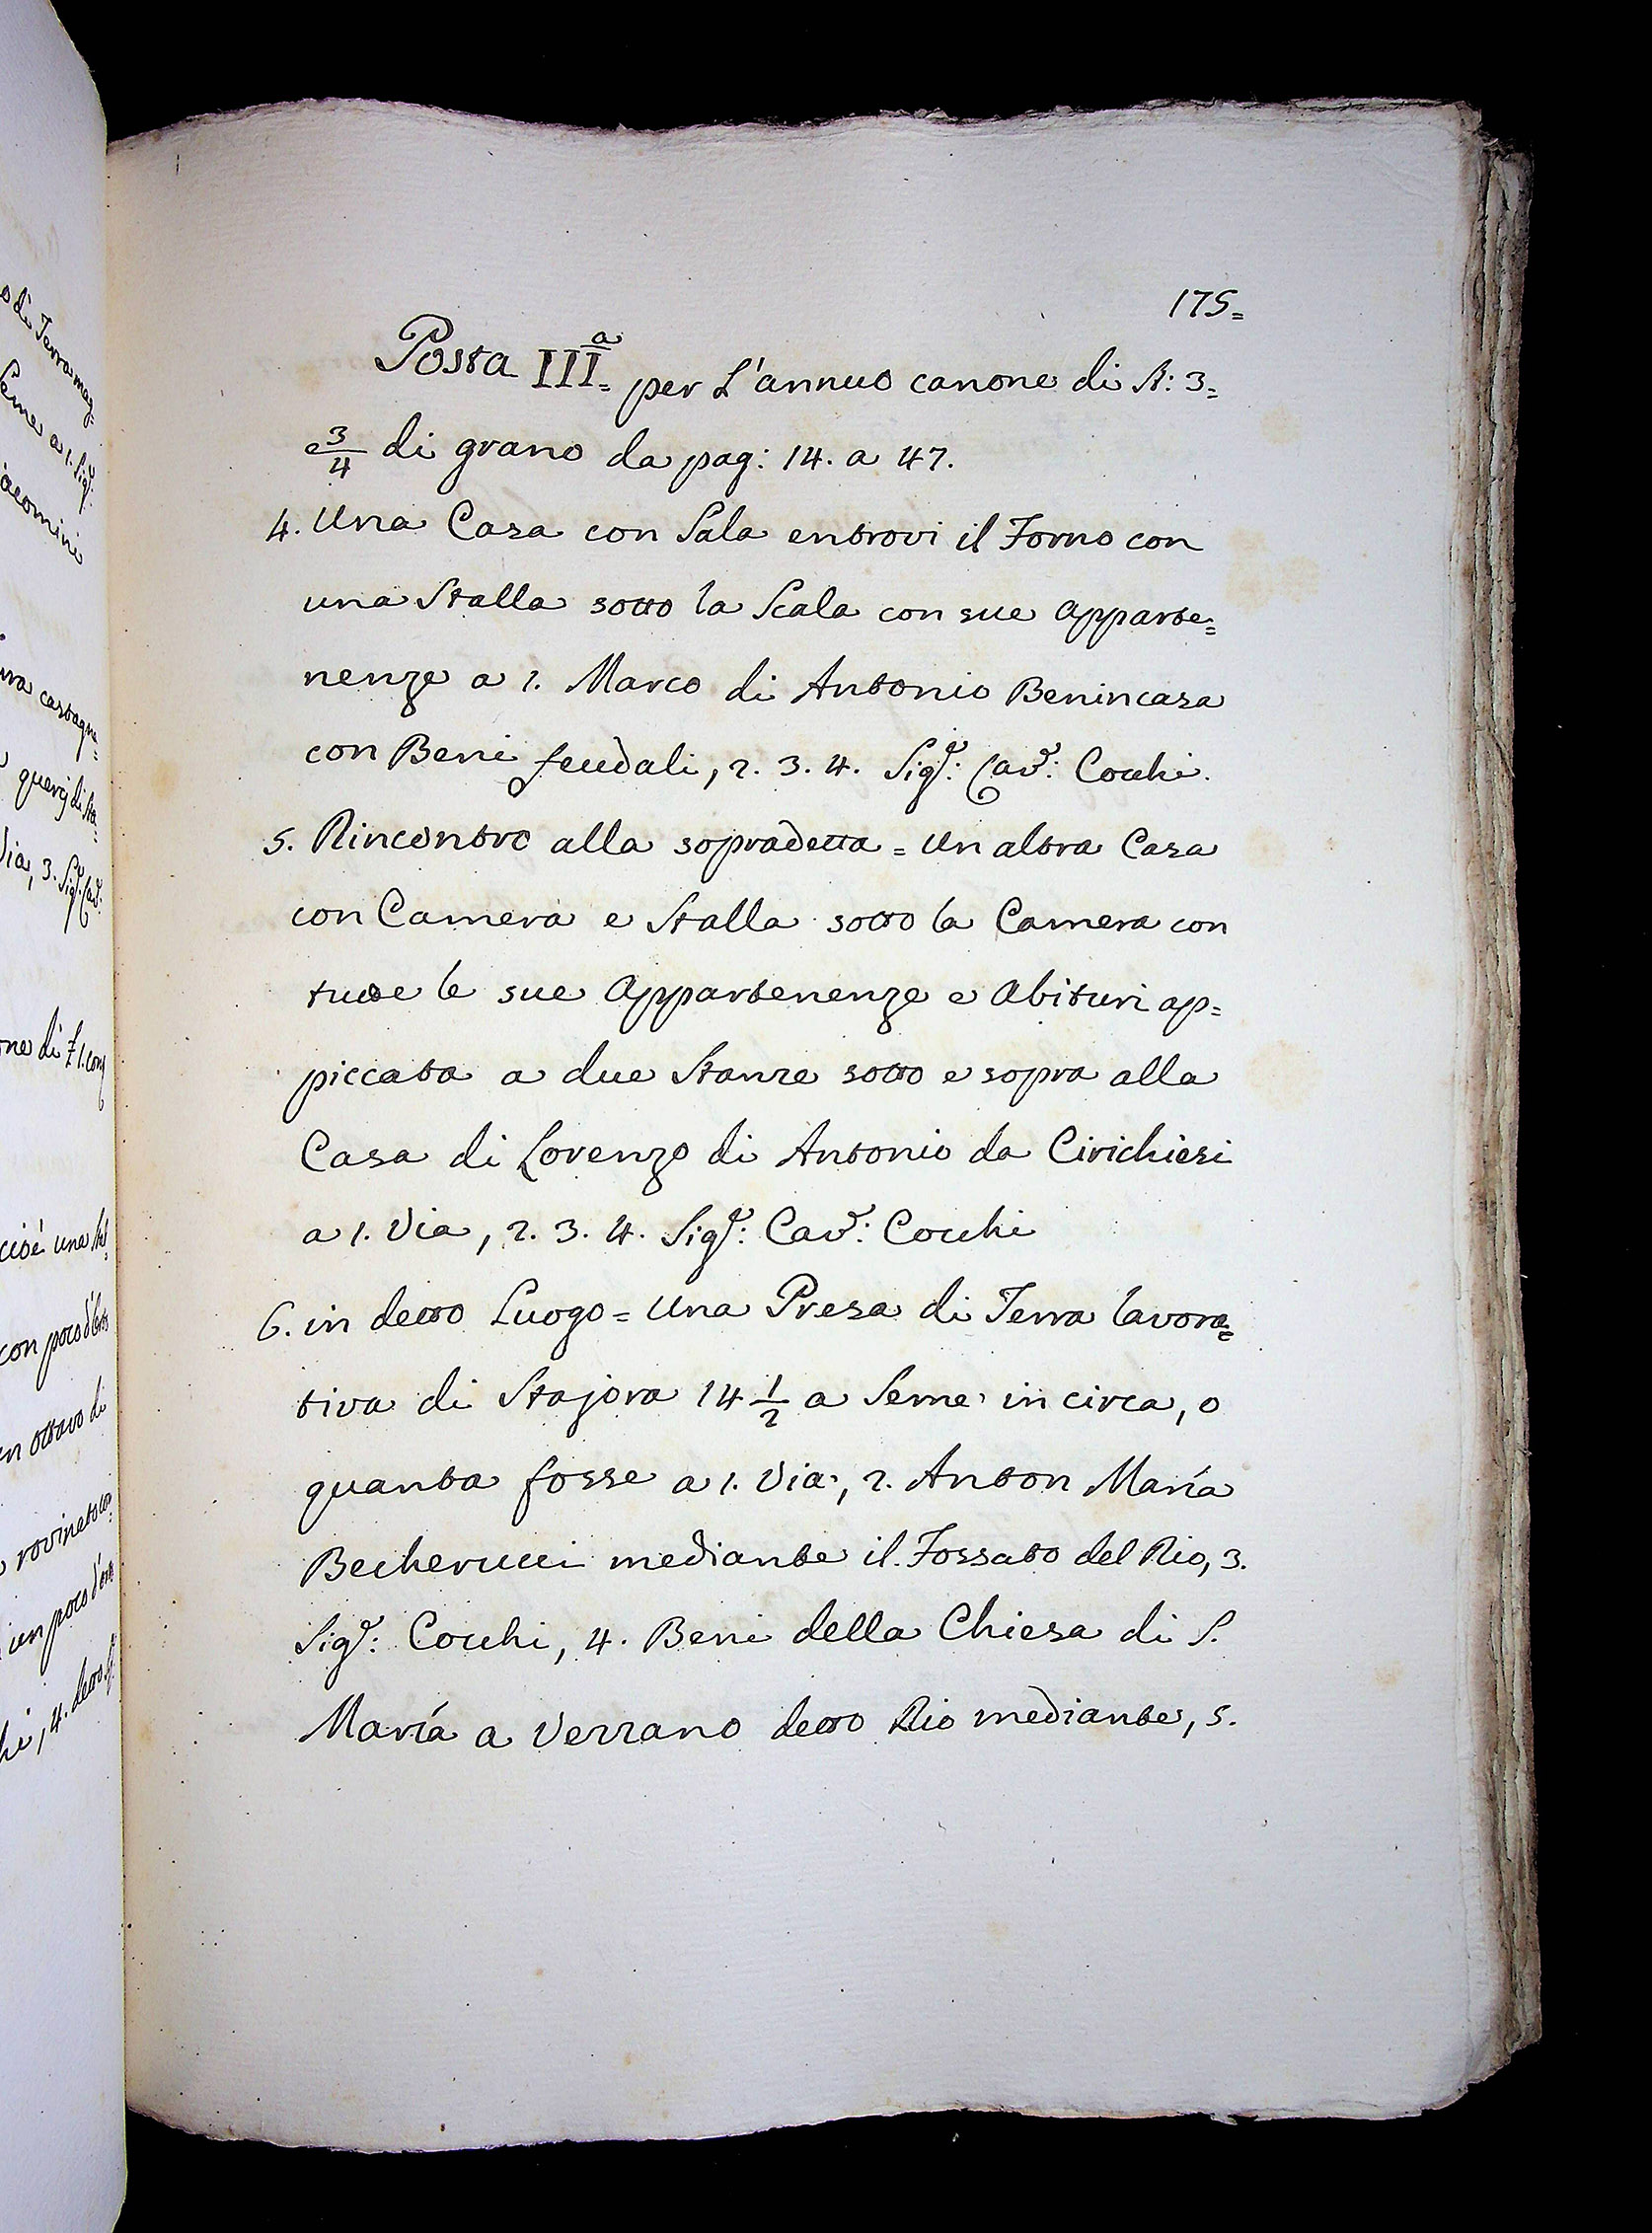 175=
Posta III.ª per L'annuo canone di St: 3=
e 3/4 di grano da pag: 14. a 47.
4. Una Casa con Sala entrovi il Forno con
una Stalla sotto la Scala con sue Apparte=
nenze a 1. Marco di Antonio Benincasa
con Beni feudali, 2. 3. 4. Sigr: Cavr: Cocchi.
5. Rincontro alla sopradetta = Un altra Casa
con Camera e Stalla sotto la Camera con
tutte le sue Appartenenze e Abituri ap=
piccata a due Stanze sotto e sopra alla
Casa di Lorenzo di Antonio da Cirichiesi
a 1. Via, 2. 3. 4. Sigr: Cavr: Cocchi
6. in detto Luogo = Una Presa di Terra lavora=
tiva di Stajora 14 1/2 a Seme in circa, o
quanta fosse a 1. Via, 2. Anton María
Becherucci mediante il Fossato del Rio, 3.
Sigr: Cocchi, 4. Beni della Chiesa di S.
María a Verzano detto Rio mediante, 5.